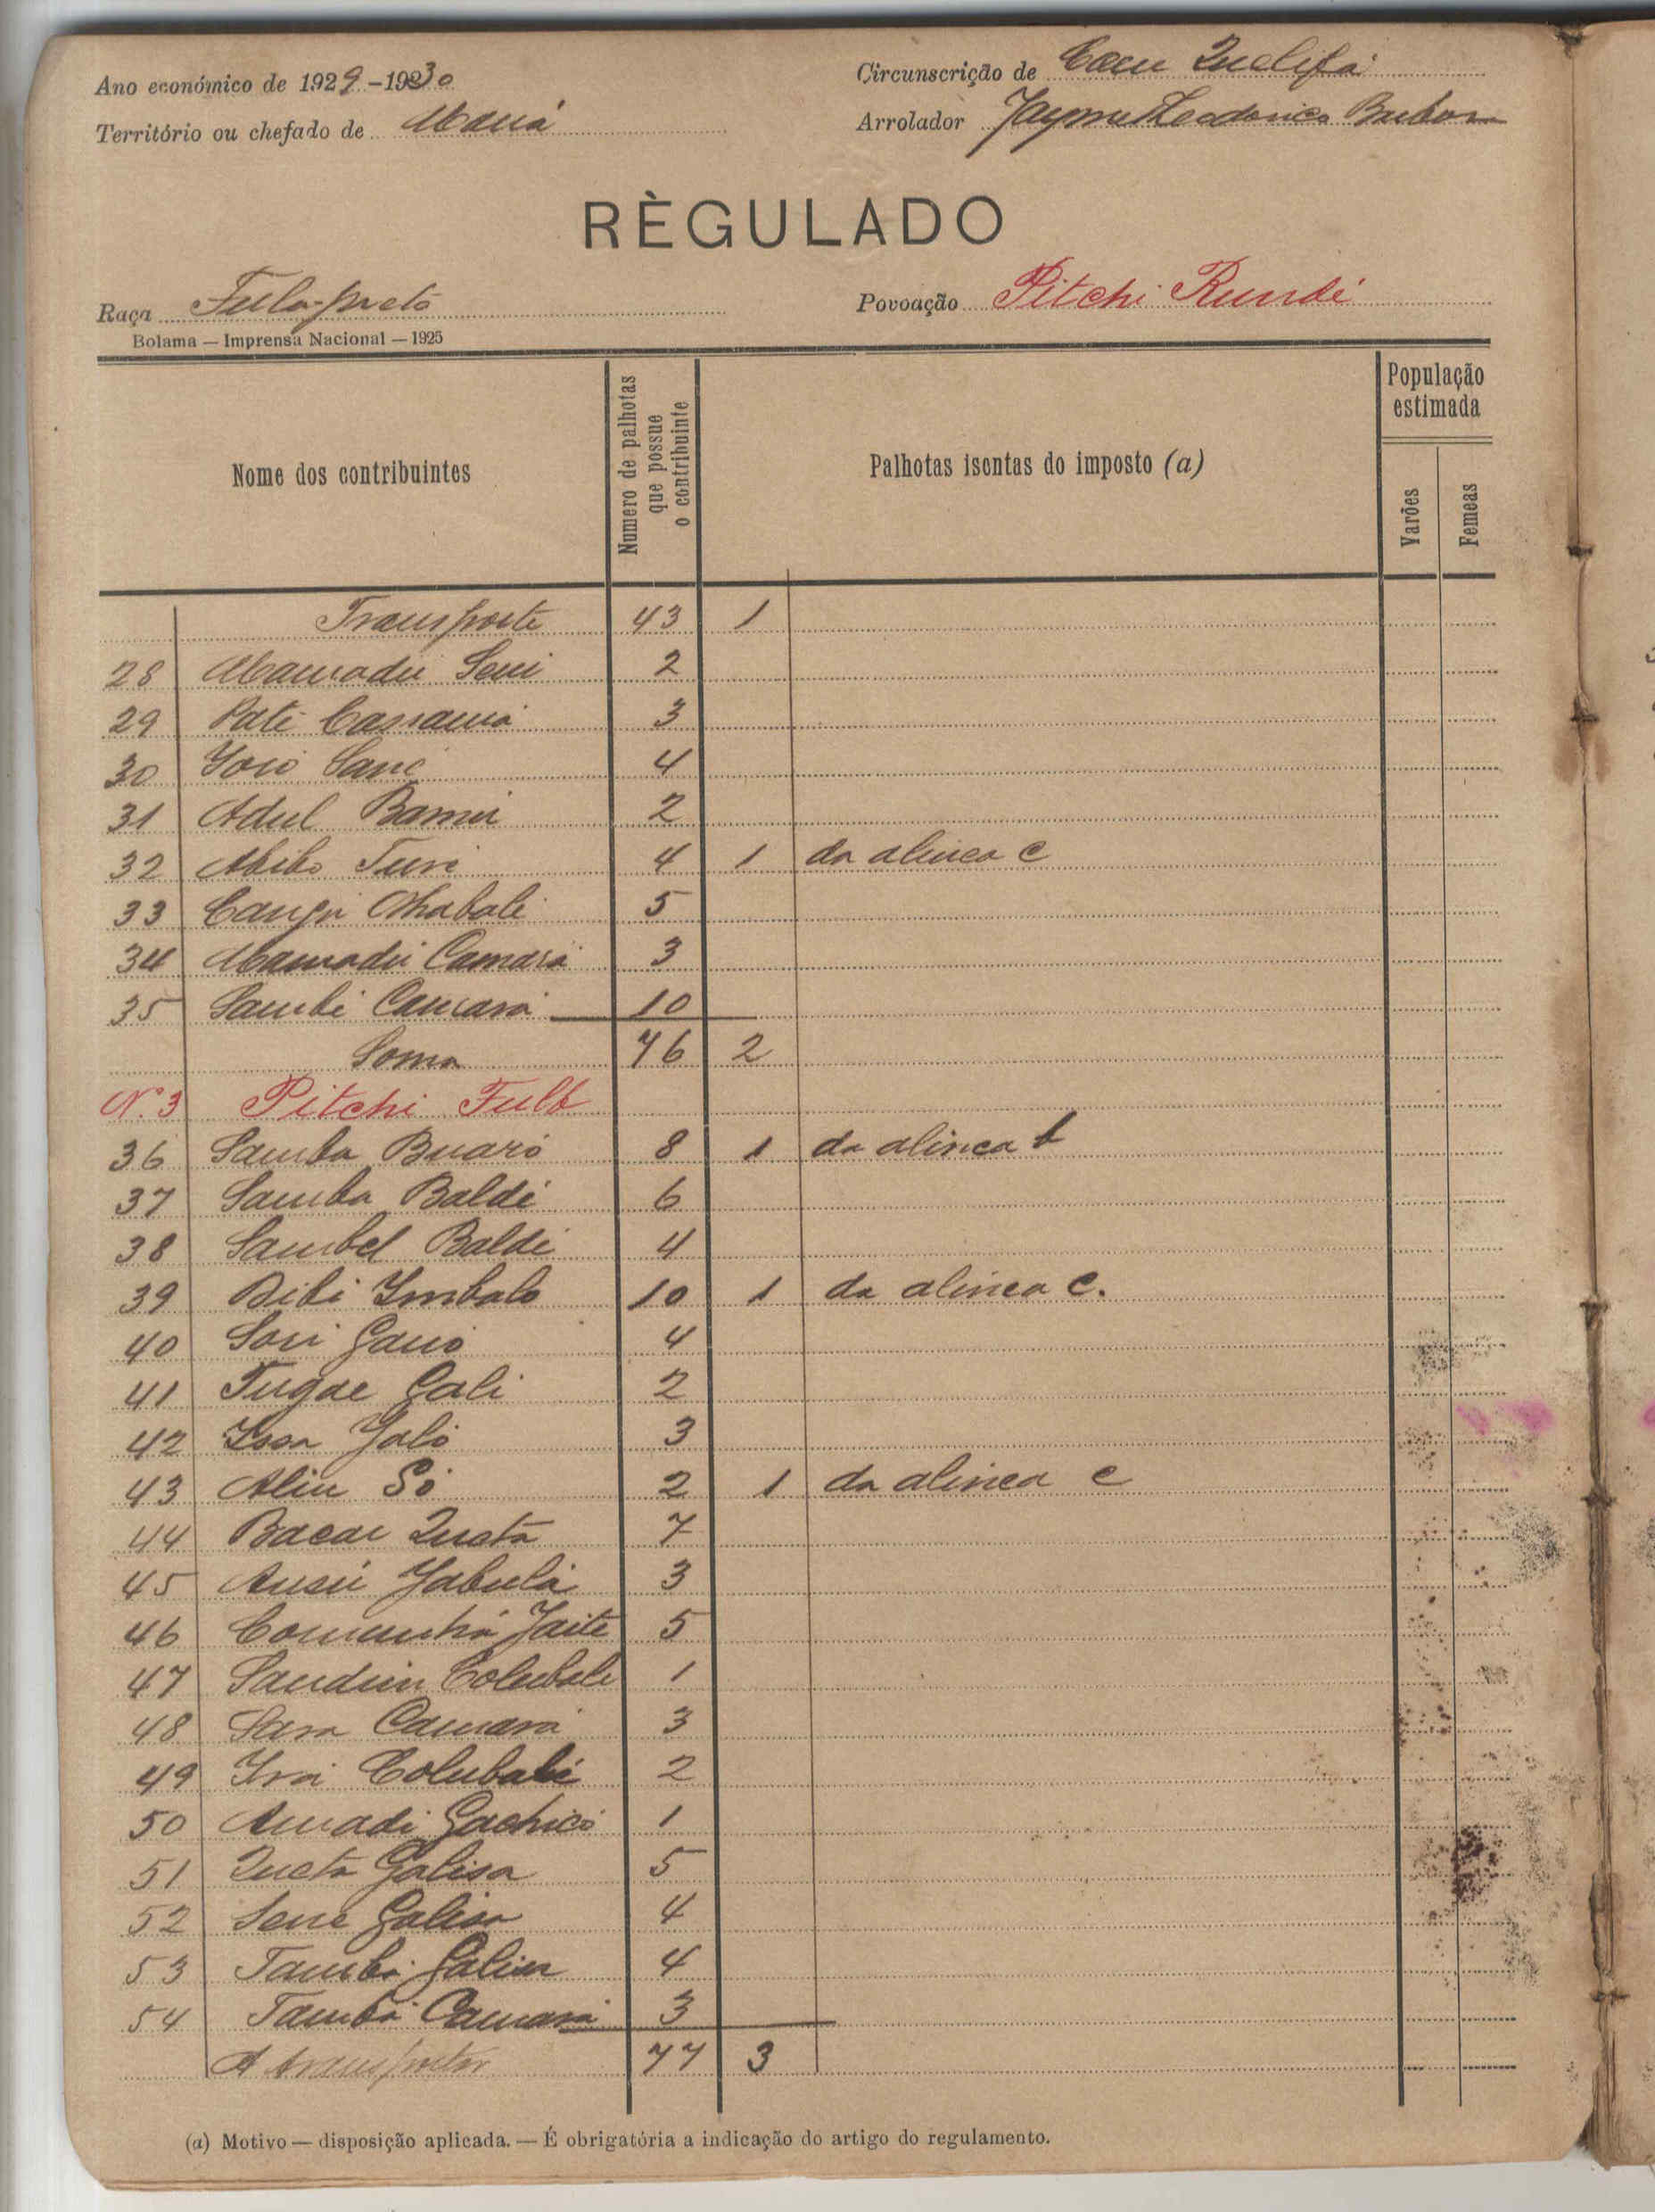 Ano económico de 1929-1930
Circunscrição de Cacu Quelifá
Território ou chefado de Maná
Arrolador Jayme Theodorico Barbosa
RÈGULADO
Raça Fula-preto
Povoação Pitchi Rundé
Bolama — Imprensa Nacional — 1925
Nome dos contribuintes
Numero de palhotas que possue o contribuinte
Palhotas isentas do imposto (a)
População estimada
Varões
Femeas
Transporte 43 1
28 Mamadú 2
29 Paté Cassamá 3
30 Sané 4
31 Adul 2
32 Abibo Turé 4 1 da alinea c
33 5
34 Mamadú Camará 3
35 Sambé Camará 10
Soma 76 2
N.º 3 Pitchi Fulb
36 Samba Buaró 8 1 da alinea b
37 Samba Baldé 6
38 Sambel Baldé 4
39 Bibi Imbalo 10 1 da alinea c.
40 Sori Ganó 4
41 Tugae Gali 2
42 Issa Jaló 3
43 Aliu Só 2 1 da alinea c
44 Bacar Queta 7
45 Ansú Jabulá 3
46 Jaite 5
47 Colubali 1
48 Sara Camará 3
49 Colubali 2
50 Amadi 1
51 Queta Galisa 5
52 Sene Galisa 4
53 Tambá Galisa 4
54 Tambá Camará 3
A transportar 77 3
(a) Motivo — disposição aplicada. — É obrigatória a indicação do artigo do regulamento.